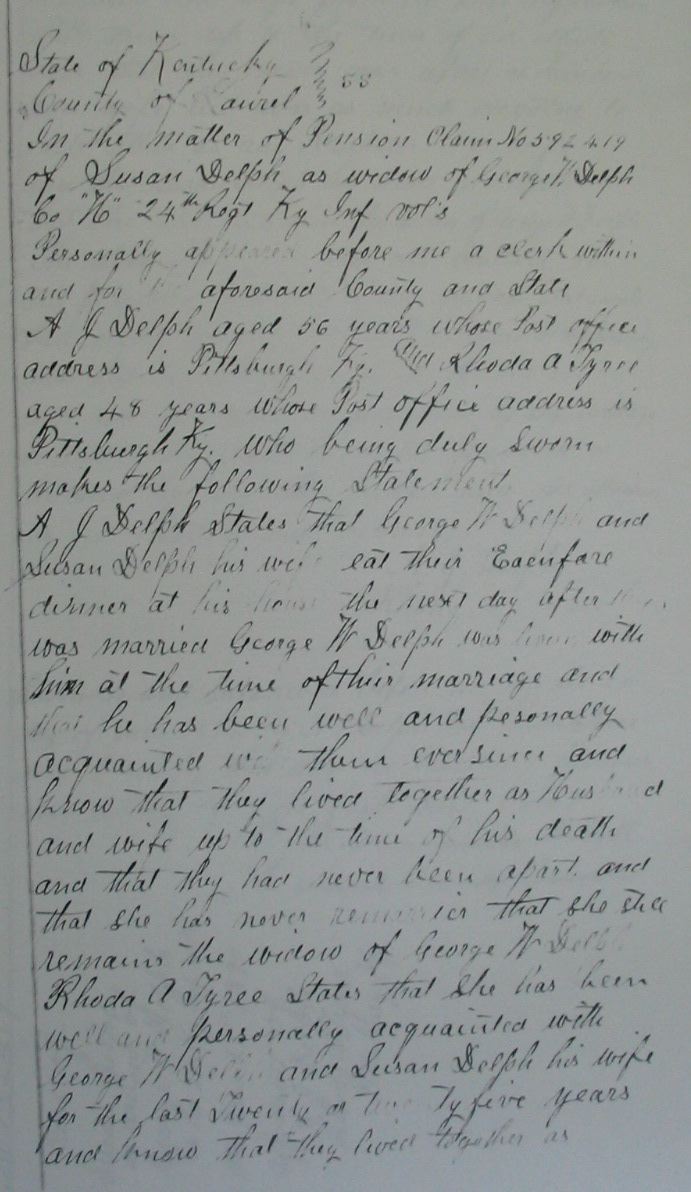 State of Kentucky
County of Laurel } SS
In the matter of Pension Claim No 592419
of Susan Delph as widow of George W. Delph
Co "H" 24th Regt Ky Inf vol's
Personally appeared before me a clerk within
and for aforesaid County and State
A J Delph aged 56 years whose Post office
address is Pittsburgh Ky. and Rhoda A Tyree
aged 48 years whose Post office address is
Pittsburgh Ky. who being duly sworn
makes the following Statement
A J Delph States that George W Delph and
Susan Delph his wife eat their
dinner at his house the next day after
was married George W Delph was with
him at the time of their marriage and
that he has been well and pesonally
acquainted with them ever since and
know that they lived together as Husband
and wife up to the time of his death
and that they had never been apart and
that she has never that she still
remains the widow of George W Delph
Rhoda A Tyree States that she has been
well and personally acquainted with
George W Delph and Susan Delph his wife
for the last Twenty or five years
and know that they lived together as